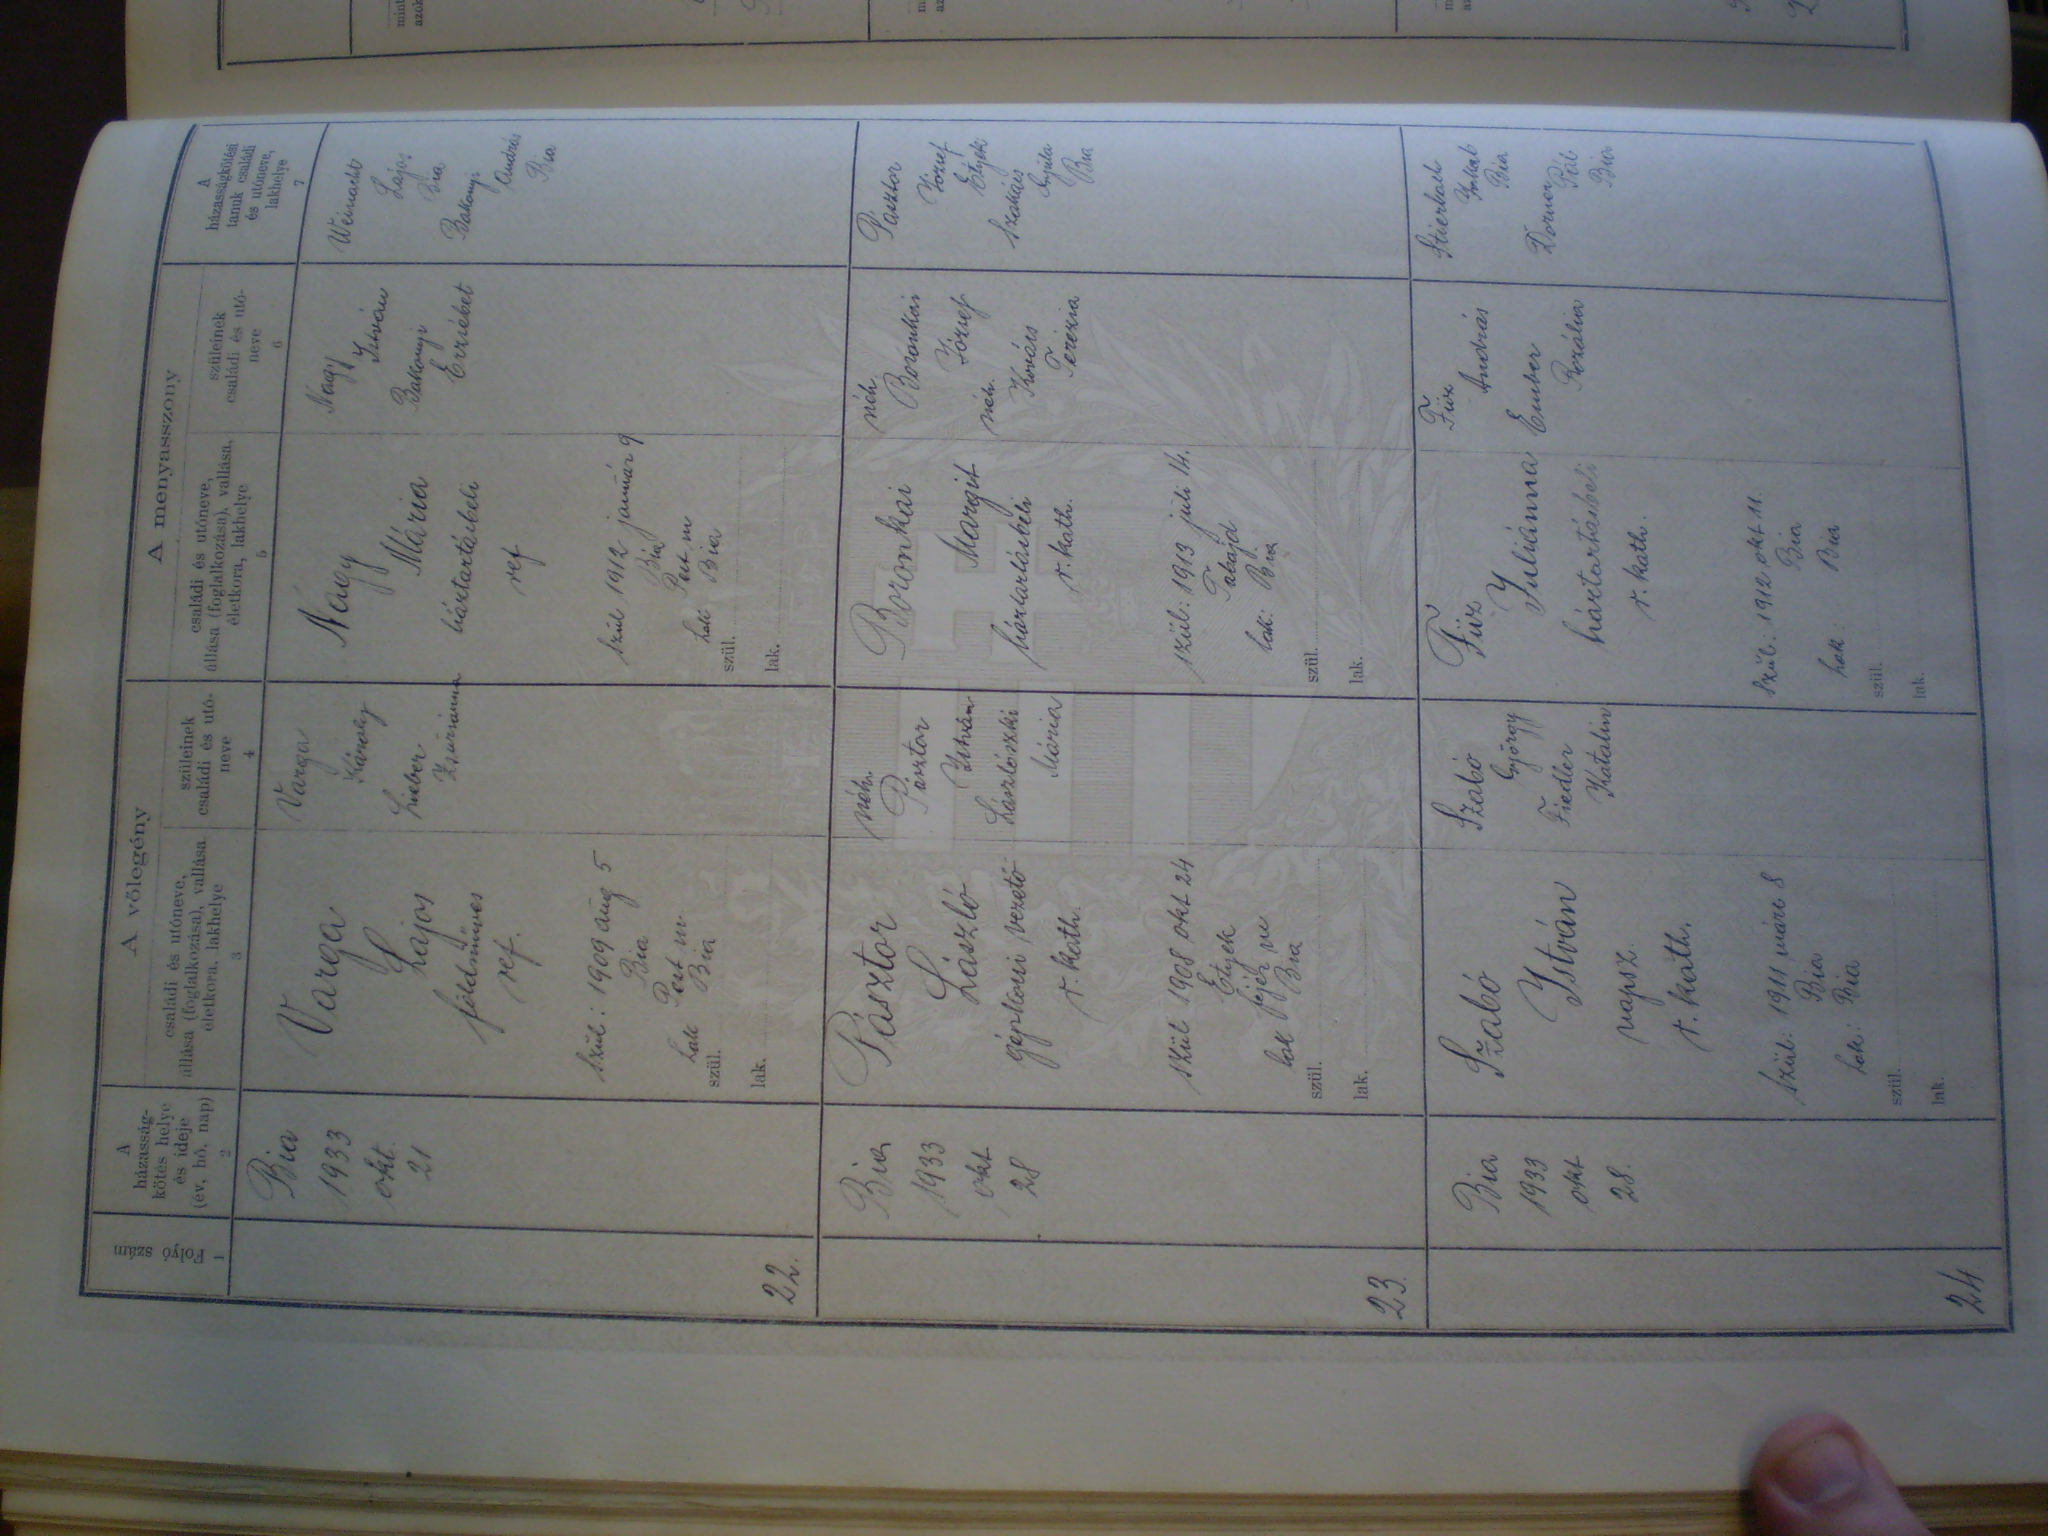 1
Folyó
szám
A
házasság-
kötés helye
és ideje
(év, hó. nap)
2
A vőlegény
családi és utóneve,
állása (foglalkozása), vallása
életkora, lakhelye
3
szüleinek
családi és utó-
neve
4
A menyasszony
családi és utóneve,
állása (foglalkozása), vallása,
életkora, lakhelye
5
szüleinek
családi és utó-
neve
6
A
házasságkötési
tanuk családi
és utóneve,
lakhelye
7
22.
Bia
1933
okt.
21
Varga
Lajos
földműves
ref.
szül: 1909 aug 5
Bia
Pest m
lak Bia
szül.
lak.
Varga
Károly
Lieber
Zsuzsánna
Nagy
Mária
háztartásbeli
ref
szül 1912 január 9
Bia
Pest m
lak Bia
szül.
lak.
Nagy
István
Bakonyi
Erzsébet
Lajos
Bia
Bakonyi
András
Bia
23.
Bia
1933
okt
28
Pásztor
László
gépkocsi vezető
r. kath.
szül 1908 okt 24
Etyek
fejér m
lak Bia
szül.
lak.
néh.
Pásztor
István
Lászlószki
Mária
Boronkai
Margit
háztartásbeli
r. kath.
szül: 1913 juli 14.
Tabajd
lak: Bia
szül.
lak.
néh.
Boronkai
József
néh.
Kovács
Terézia
Pásztor
József
Etyek
Szakács
Gyula
Bia
24.
Bia
1933
okt
28.
Szabó
István
napsz.
r. kath.
szül: 1911 márc 8
Bia
lak: Bia
szül.
lak.
Szabó
György
Fiedler
Katalin
Füz
Juliánna
háztartásbeli
r. kath.
szül: 1912 okt 11.
Bia
lak: Bia
szül.
lak.
Füz
András
Ember
Rozália
Jakab
Bia
Dorner
Pál
Bia